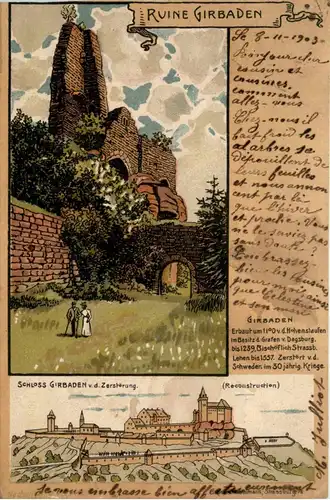 RUINE GIRBADEN
le 8-11-1903
Bonjour cher
cousin et
cousines,
comment
allez-vous
Chez-nous il
fait froid les
arbres se
dépouillent de
leurs feuilles
et nous annon
cent par là
que l'hiver
est proche. Vous
ne le savez pas
sans doute?
Embrassez
bien les
pour moi
et son mari
GIRBADEN
Erbaut um 1100 v. d. Hohenstaufen
im Besitz d. Grafen v. Dagsburg.
bis 1239, Bischöflich Strassb.
Lehen bis 1557. Zerstört v. d.
Schweden im 30 jährig. Kriege.
SCHLOSS GIRBADEN v. d. Zerstörung.
(Reconstruction)
vous embrasse bien affectueusement